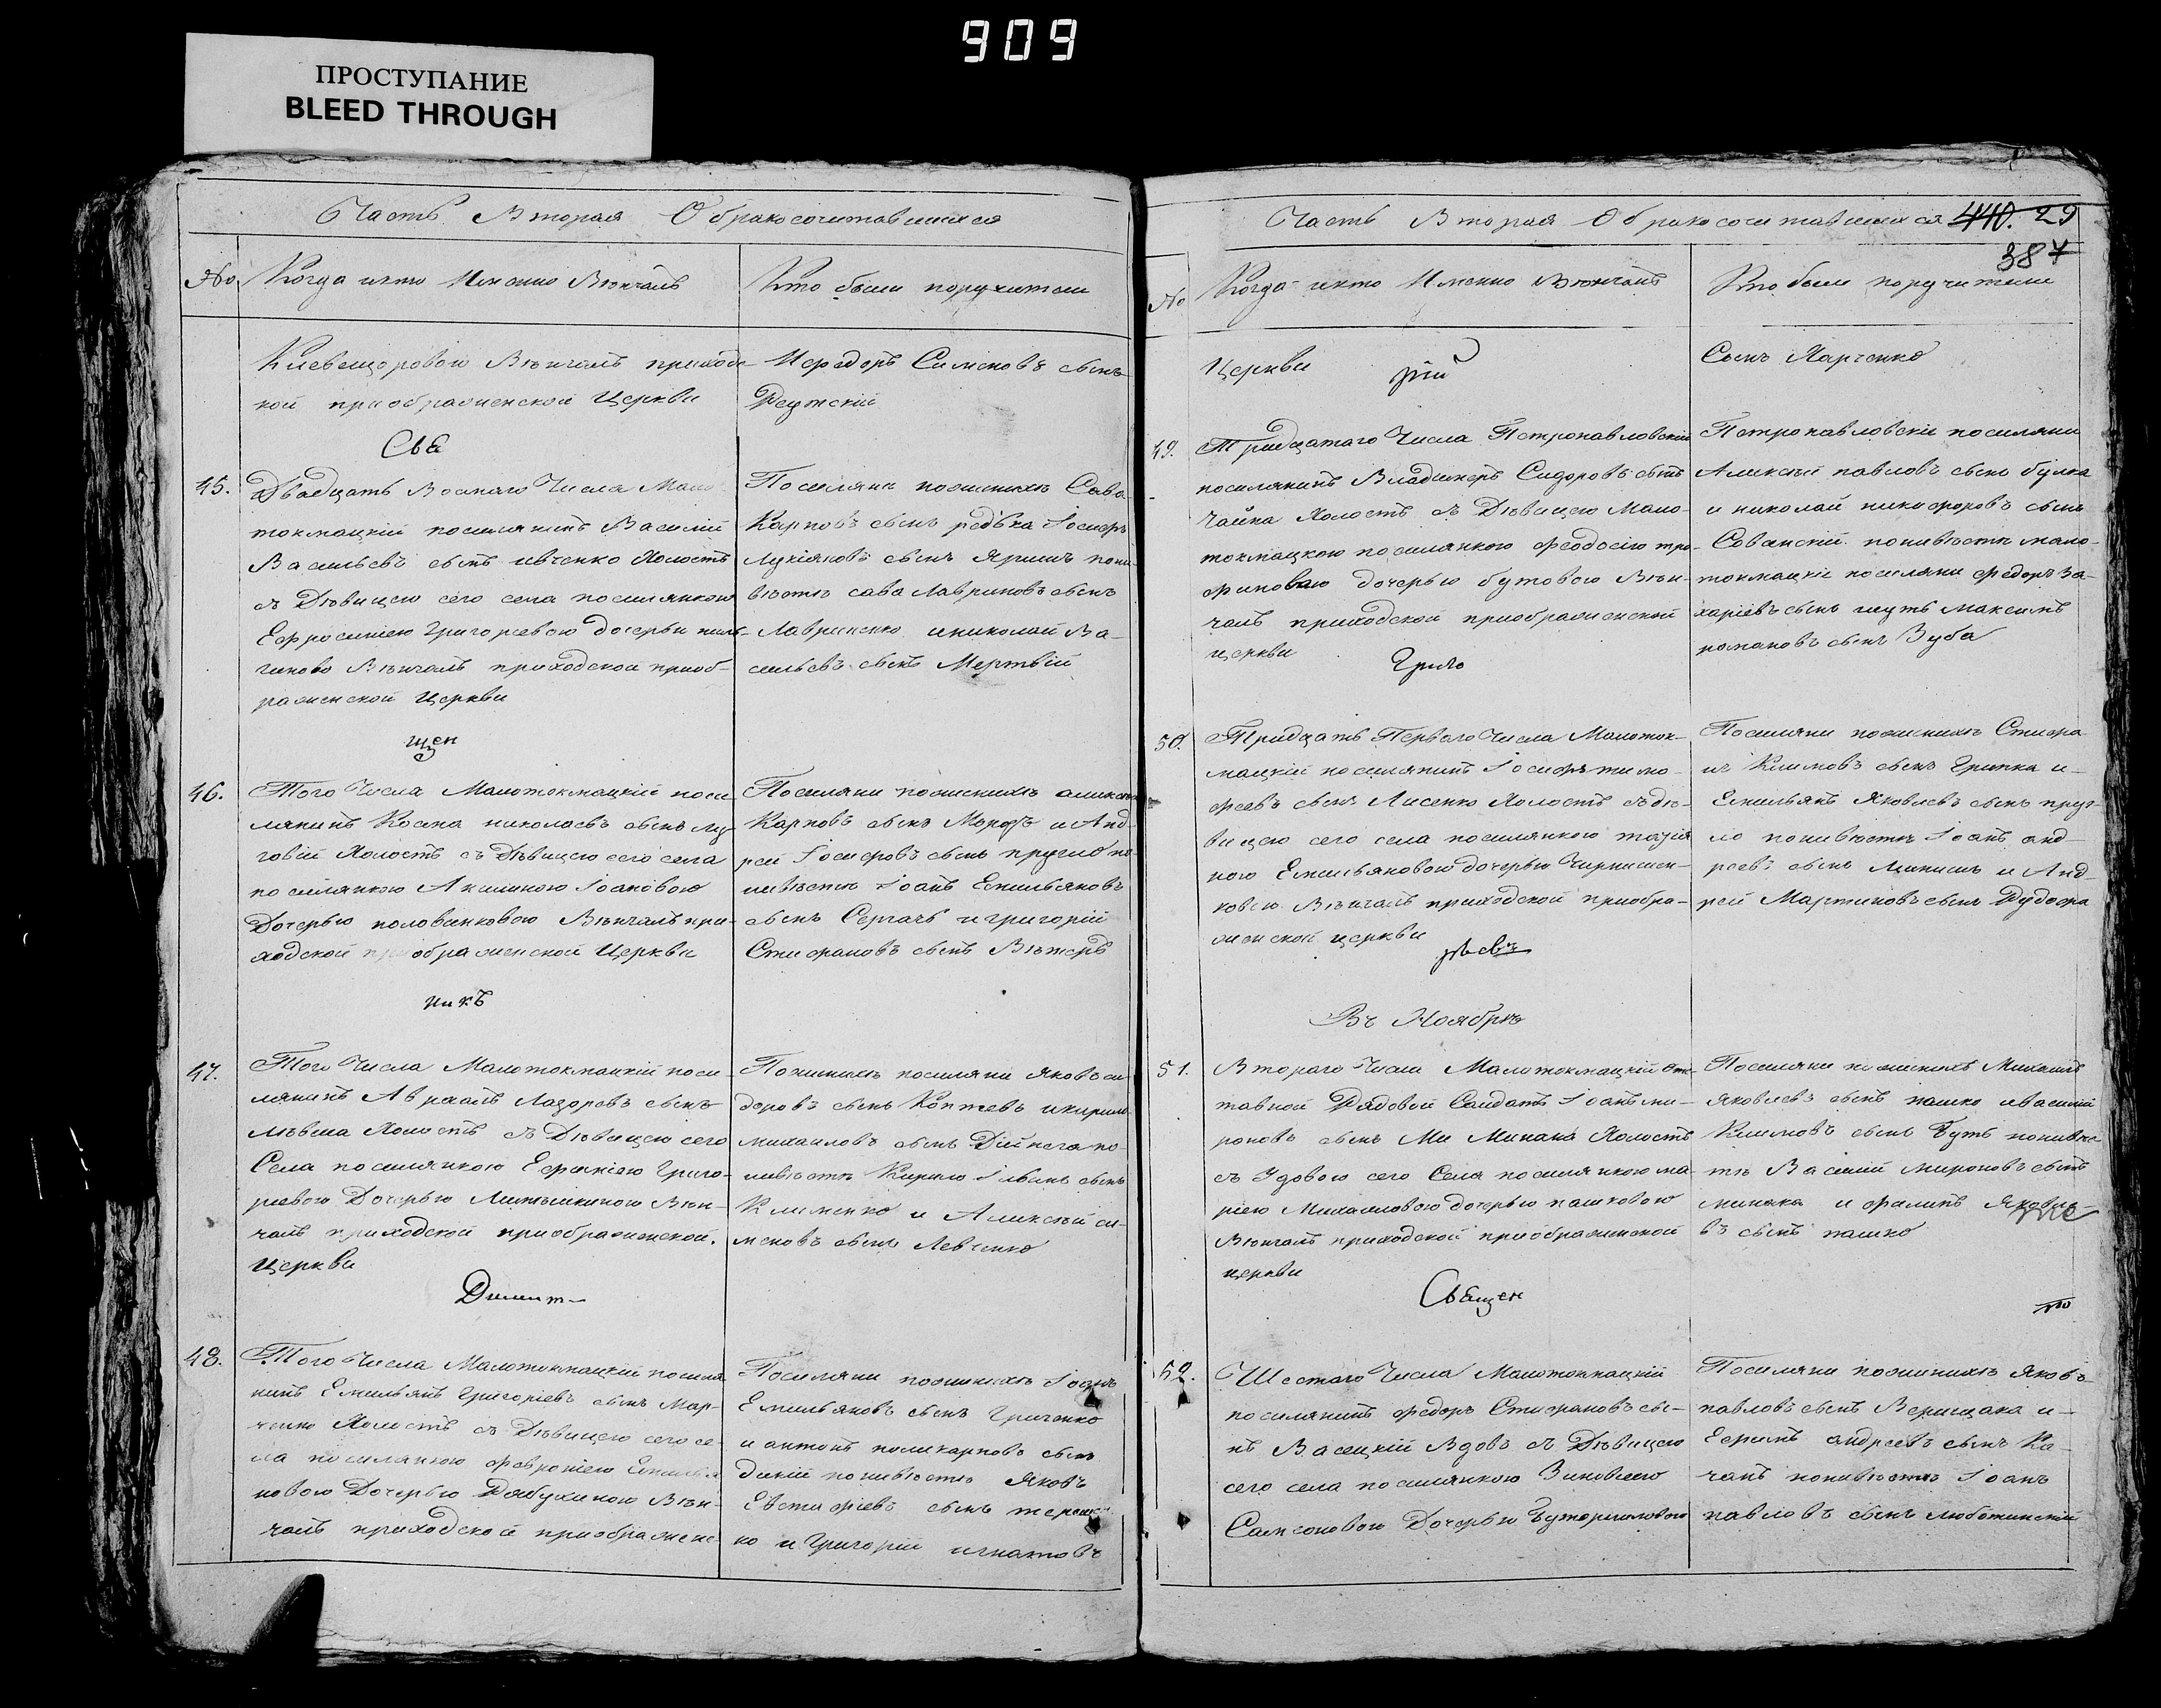 909
ПРОСТУПАНИЕ
BLEED THROUGH
Часть Вторая О бракосочитавшихся
№ Когда и кто Именно Вѣнчалъ
Кто были поручители
Киевещоровою Вѣнчалъ приходс-
кой приображенской Церкви
Исфодоръ Симоновъ сынъ
Реутскій
Свя
45.
Двадцать Восмаго Числа Мало-
токмацкій посилянинъ Василій
Васильевъ сынъ ивченко Холостъ
съ Дѣвицею сего села посилянкою
Ефросиніею Григорьевою дочерью
гиново Вѣнчалъ приходской приоб-
раженской Церкви
Посиляни поженихѣ Сава
Карповъ сынъ редька Іосифъ
Лукіяновъ сынъ Яришъ поне-
вѣстѣ сава Лавриновъ сынъ
Лавриненко и николай Ва-
сильевъ сынъ Мертвій
щен
46.
Того Числа Малотокмацкій поси-
лянинъ Косма николаевъ сынъ Лу-
говій Холостъ съ Дѣвицею сего села
посилянкою Акилиною Іоановою
Дочерью половинковою Вѣнчалъ при-
ходской приображенской Церкви
Посиляни поженихѣ аликсѣй
Карповъ сынъ Морозъ и Анд-
рей Іосифовъ сынъ пругло по-
невѣстѣ Іоанъ Емильяновъ
сынъ Сергачъ и григорій
Стифановъ сынъ Вѣтеръ
никъ
47.
Того Числа Малотокмацкій поси-
лянинъ Авраамъ Лазоревъ сынъ
Холостъ съ Дѣвицею сего
Села посилянкою Ефиміею Григо-
ріевою Дочерью Литвинкиною Вѣн-
чалъ приходской приображенской
Церкви
Поженихѣ посиляни Яковъ си-
доровъ сынъ Коптевъ и кирилъ
михаиловъ сынъ Дійнега по-
невѣстѣ Кирило Ильинъ сынъ
Клименко и Аликсѣй си-
меновъ сынъ Левченко
Димит-
48.
Того Числа Малотокмацкій посиля-
нинъ Емильянъ Григоріевъ сынъ Мар-
ченко Холостъ съ Дѣвицею сего се-
ла посилянкою февроніею Емилья-
новою Дочерью Рябухиною Вѣн-
чалъ приходской приображенс-
Посиляни поженихѣ Іоанъ
Емильяновъ сынъ Гриченко
и антонъ поликарповъ сынъ
Дикій поневѣстѣ Яковъ
Евстифіевъ сынъ терещен-
ко и Григорій игнатовъ
Часть Вторая О бракосочитавшихся 440. 29
387
№ Когда и кто Именно Вѣнчалъ
Кто были поручители
Церкви
рій
Сынъ Марченко
49.
Тридцатаго Числа Петропавловскій
посилянинъ Владимеръ Сидоровъ сынъ
Чайка Холостъ съ Дѣвицею Мало-
токмацкою посилянкою феодосіею тро-
фиповаю дочерью бутовою Вѣн-
чалъ приходской приображенской
церкви
Петропавловскіе посиляни
Аликсѣй павловъ сынъ булка
и николай никифоровъ сынъ
Сованскій поневѣстѣ мало-
токмацкіе посиляни федоръ за-
харіевъ сынъ шутъ Максимъ
романовъ сынъ Зуба
Григо
50.
Тридцать Перваго Числа Малоток-
мацкій посилянинъ Іосифъ тимо-
феевъ сынъ Лисенко Холостъ съ дѣ-
вицею сего села посилянкою
Емильяновою дочерью Чирнишен-
ковою Вѣнчалъ приходской приобра-
женской церкви
Посиляни поженихѣ Стифа-
нъ Климовъ сынъ Грипка и
Емильянъ Яковлевъ сынъ пруг-
ло поневѣстѣ Іоанъ анд-
реевъ сынъ и Анд-
рей Мартиновъ сынъ Дудофа
рьевъ
Въ Ноябрѣ
51.
Втораго Числа Малотокмацкій Отс-
тавной Рядовой Салдатъ Іоанъ ми-
роновъ сынъ Ми Минака Холостъ
съ Удовою сего Села посилянкою ма-
ріею Михаиловою дочерью пашковою
Вѣнчалъ приходской приображенской
церкви
Посиляни поженихѣ Михаилъ
Яковлевъ сынъ пашко и василій
Климовъ сынъ Бутъ поневѣс-
тѣ Василій Мироновъ сынъ
минака и филипъ Яковле-
въ сынъ пашко
Священ
52.
Шестаго Числа Малотокмацкій
посилянинъ федоръ Стифановъ сы-
нъ Васецкій Вдовъ съ Дѣвицею
сего села посилянкою Зиновіею
Самсоновою Дочерью
Посиляни поженихѣ Яковъ
павловъ сынъ Верищака и
Ефимъ андреевъ сынъ Ка-
чанъ поневѣстѣ Іоанъ
павловъ сынъ люботинскій